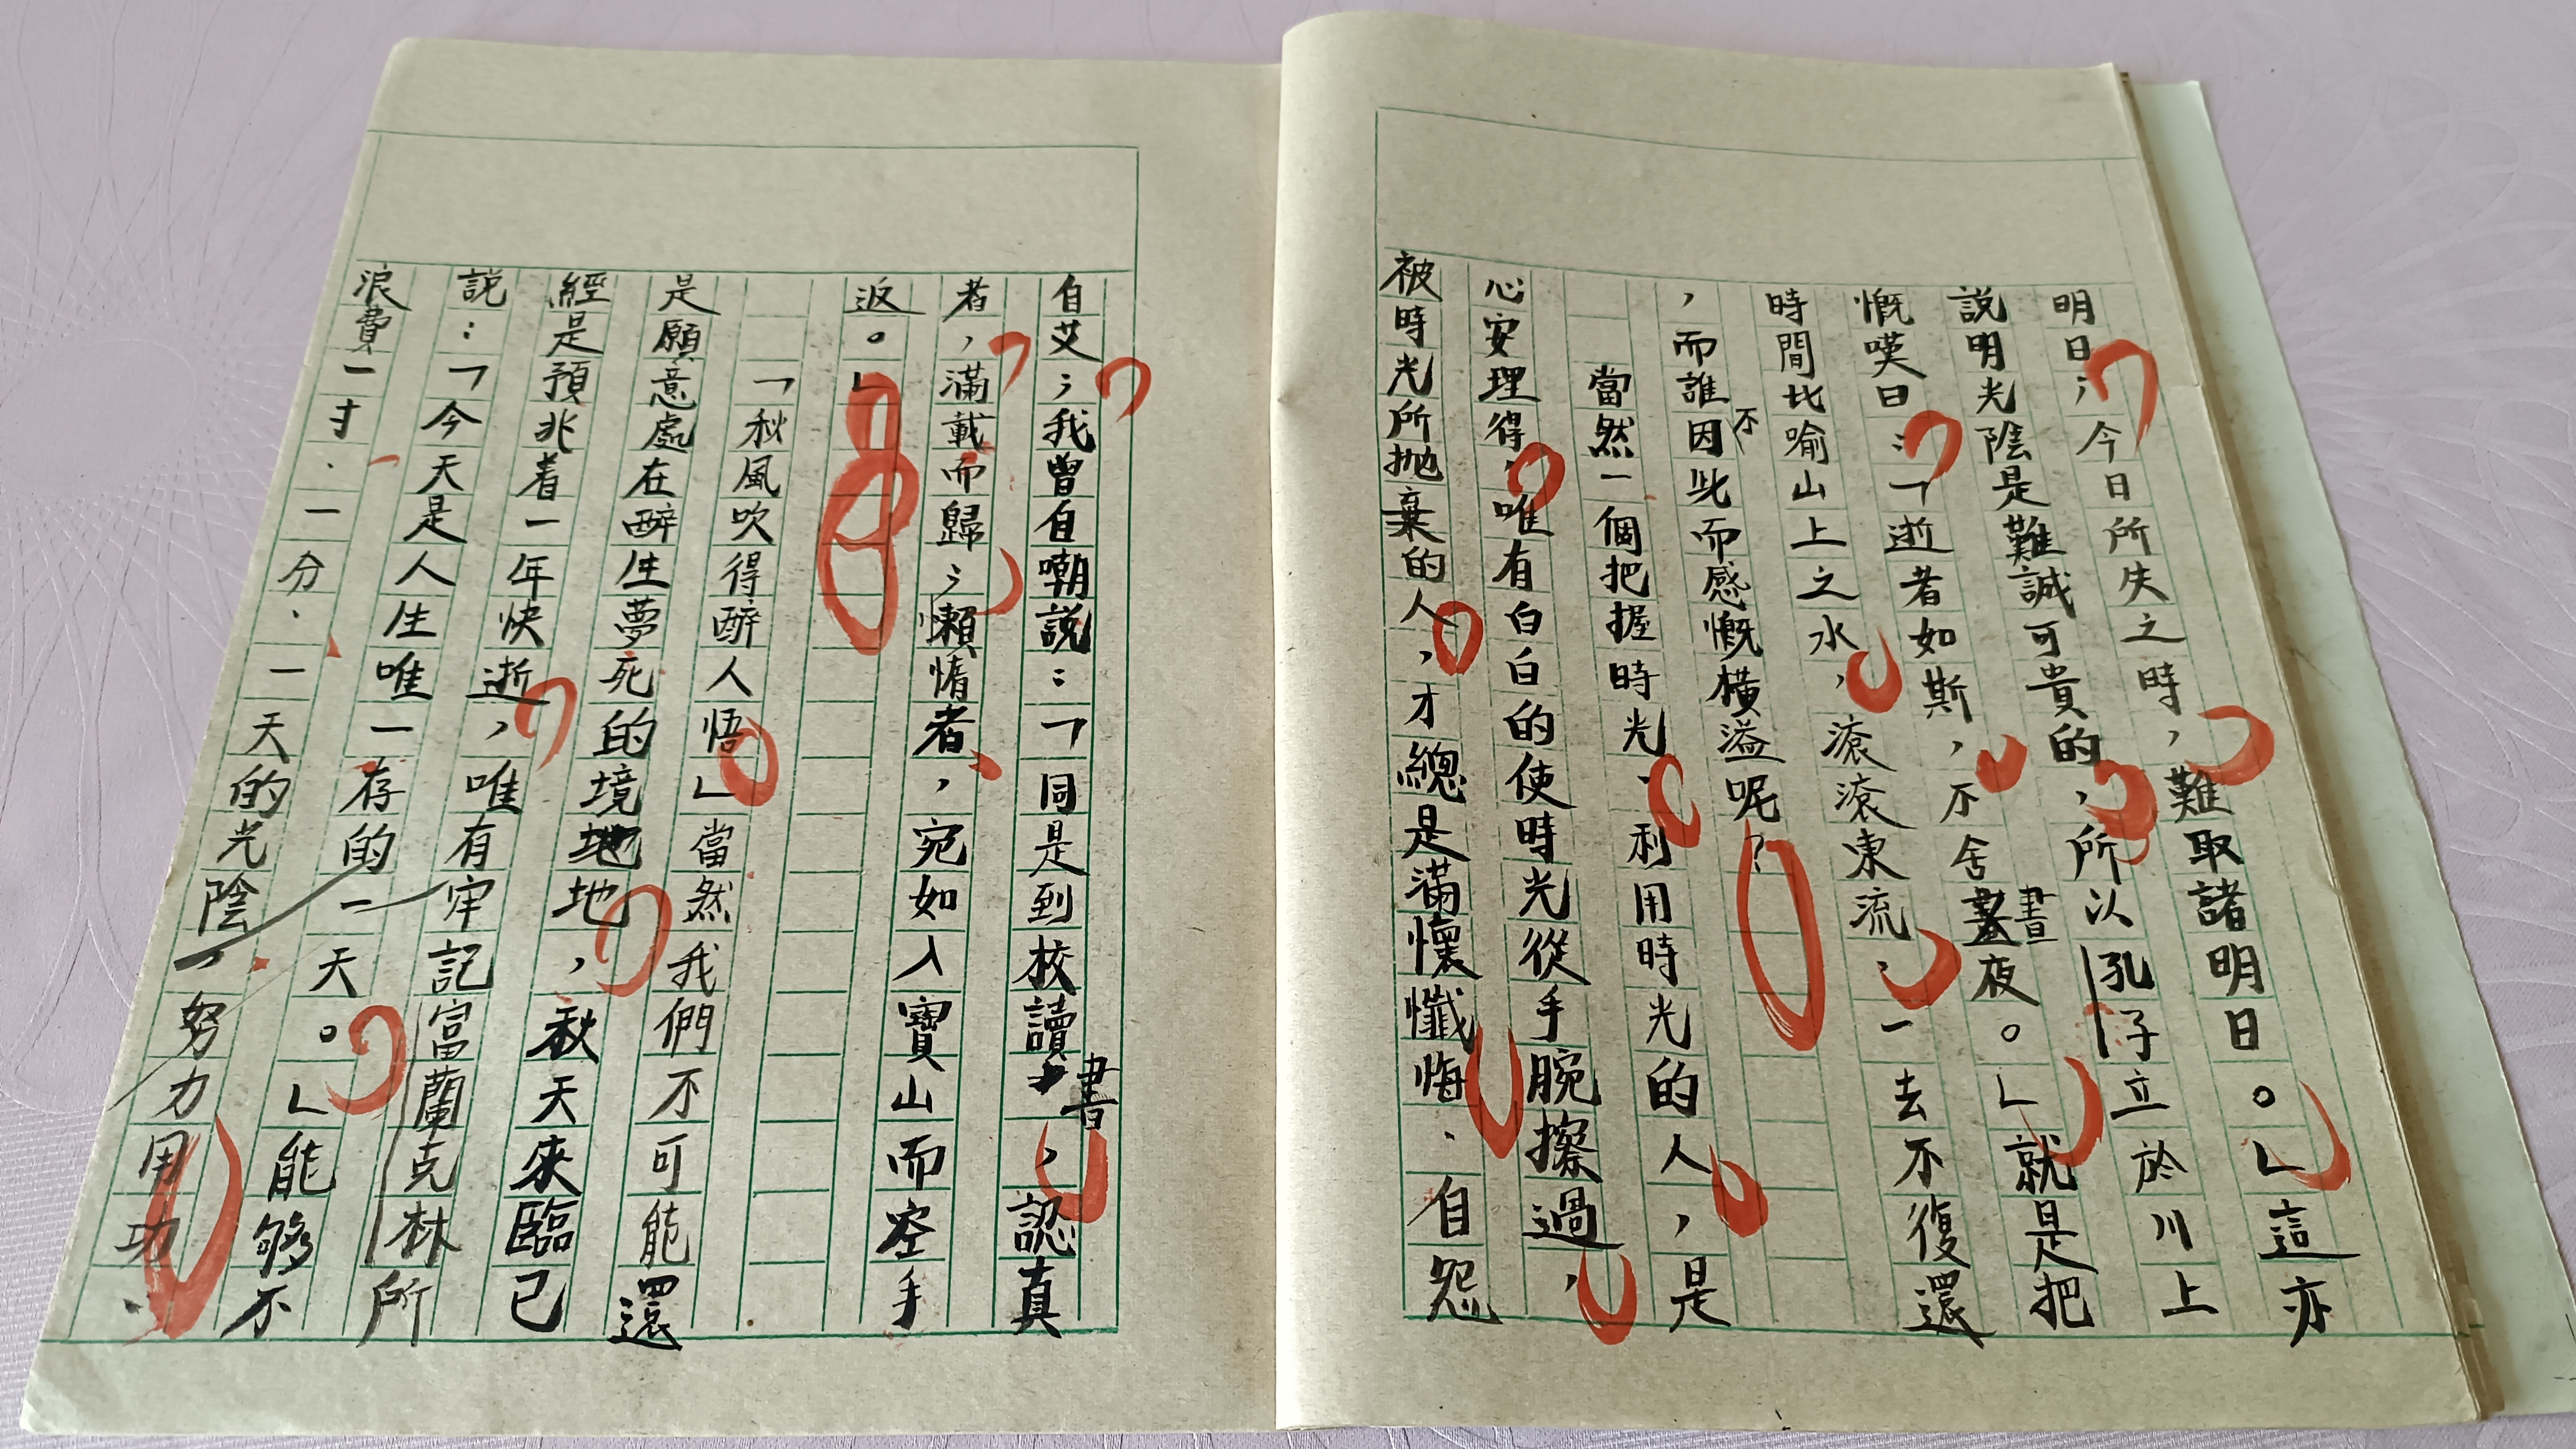 明日；今日所失之時，難取諸明日。」這亦
説明光陰是難誠可貴的，所以孔子立於川上
慨嘆曰：「逝者如斯，不舍晝夜。」就是把
時間比喻山上之水，滾滾東流，一去不復還
，而誰不因此而感慨橫溢呢？
當然一個把握時光、利用時光的人，是
心安理得，唯有白白的使時光從手腕擦過，
被時光所拋棄的人，才總是滿懷懺悔、自怨
自艾；我曾自嘲説：「同是到校讀書，認真
者，滿載而歸；懶惰者，宛如入寶山而空手
返。」
「秋風吹得醉人悟」當然我們不可能還
是願意處在醉生夢死的境地地，秋天來臨已
經是預兆着一年快逝，唯有牢記富蘭克林所
説：「今天是人生唯一存的一天。」能够不
浪費一寸、一分、一天的光陰，努力用功、